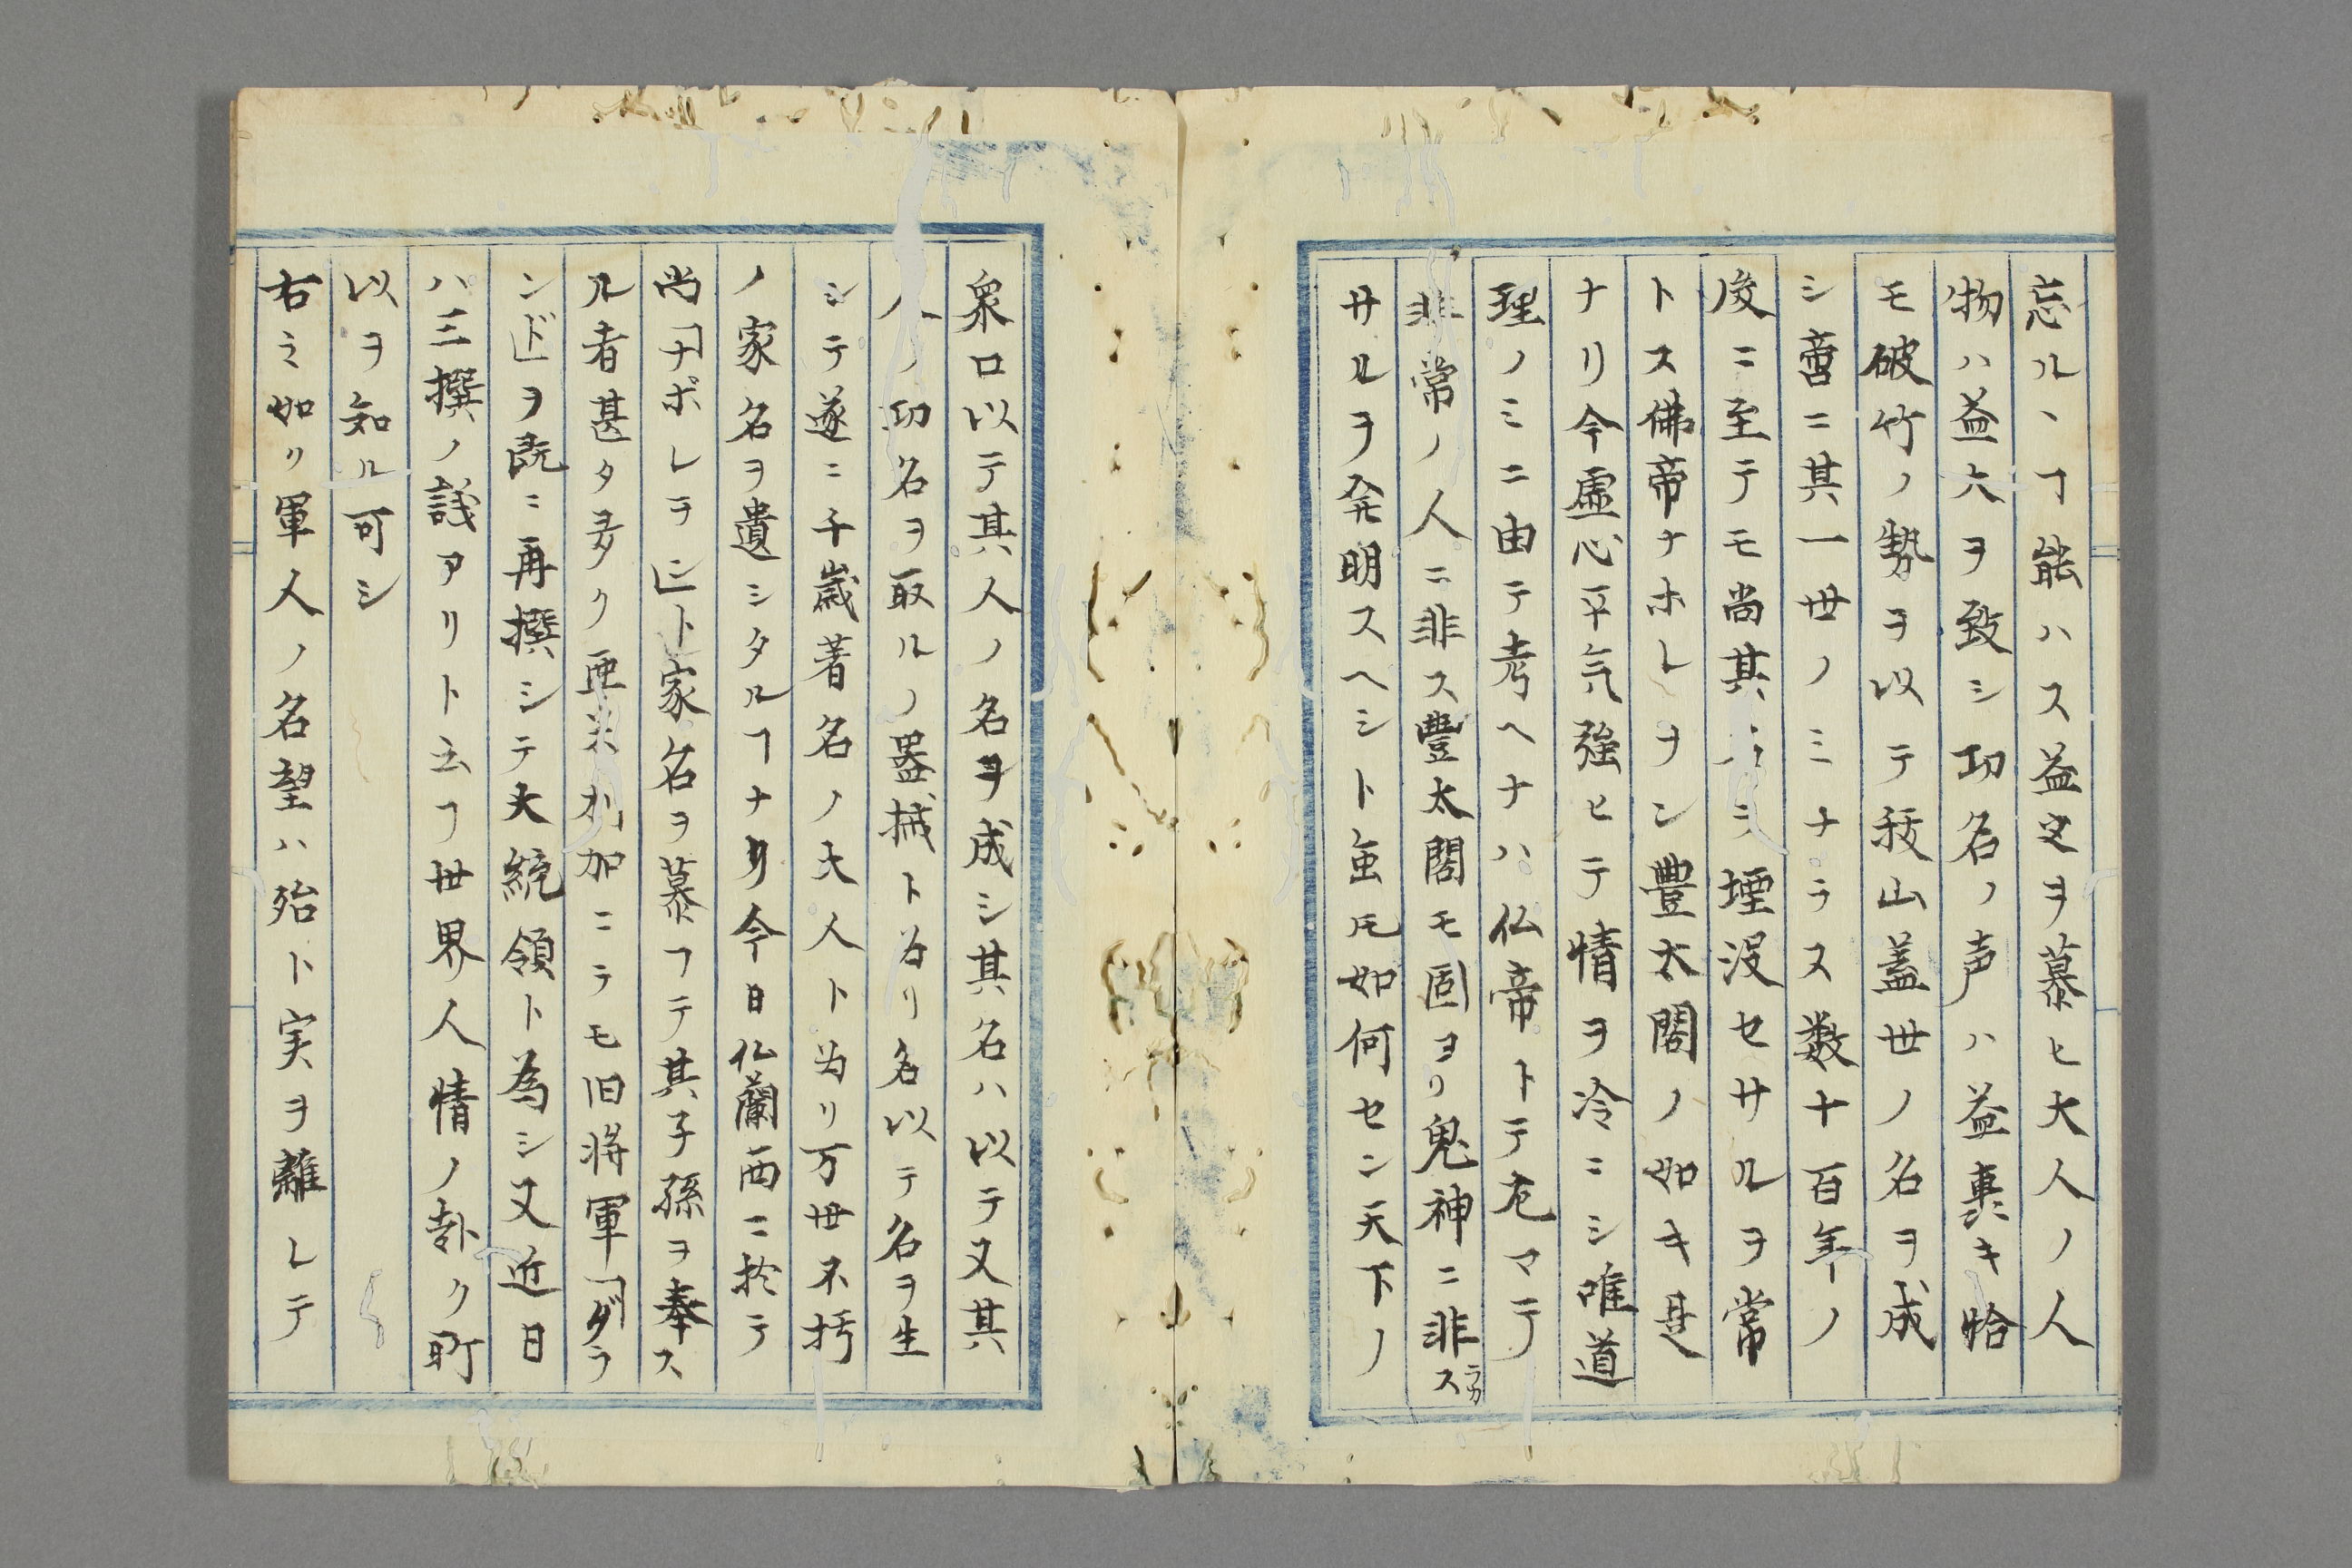 忘ル丶ヿ能ハス益々之ヲ慕ヒ大人ノ人
物ハ益大ヲ致シ功名ノ声ハ益轟キ恰
モ破竹ノ勢ヲ以テ抜山蓋世ノ名ヲ成
シ啻ニ其一世ノミナラス数十百年ノ
後ニ至テモ尚其 堙没セサルヲ常
トス佛帝ナホレヲン豊太閤ノ如キ是
ナリ今虚心平気強ヒテ情ヲ冷ニシ唯道
理ノミニ由テ考ヘナハ仏帝トテ尤マテ
非常ノ人ニ非ス豊太閤モ固ヨリ鬼神ニ非ス
サルヲ発明スヘシト雖𪜈如何セン天下ノ
衆口以テ其人ノ名ヲ成シ其名ハ以テ又其
人ノ功名ヲ取ルノ器械ト為リ名以テ名ヲ生
シテ遂ニ千歳著名ノ大人ト為リ万世不朽
ノ家名ヲ遺シタルヿナリ今日仏蘭西ニ於テ
尚「ナポレヲン」ト家名ヲ慕フテ其子孫ヲ奉ス
ル者甚タ多ク亜米利加ニテモ旧将軍「グラ
ンド」ヲ既ニ再撰シテ大統領ト為シ又近日
ハ三撰ノ議アリト云フ世界人情ノ赴ク所
以ヲ知ル可シ
右之如リ軍人ノ名望ハ殆ト実ヲ離レテ